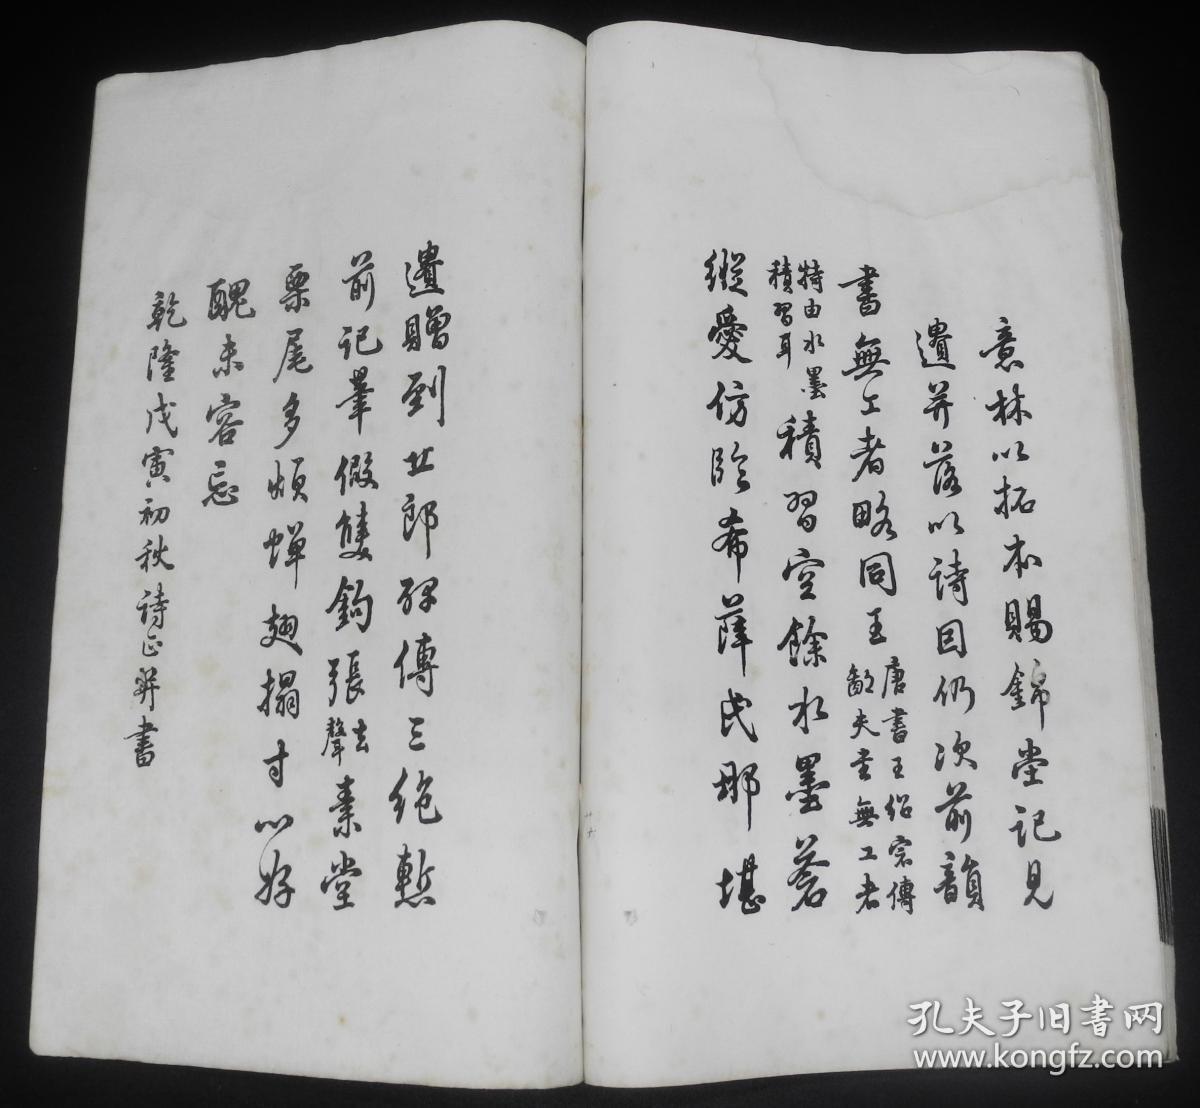 意林以拓本賜錦堂記見
遺并落以詩因仍次前韻
書無工者略同王唐書王紹宗傳
鄙夫書無工者
特由水墨
積習耳積習空餘水墨蒼
縱愛仿臨希薛氏那堪
遺贈到廿郎碑傳三絶慙
前記摹假雙鉤張去
聲素堂
栗尾多煩蟬翅搨寸心好
醜未容忘
乾隆戊寅初秋詩正并書
孔夫子旧書网
www.kongfz.com